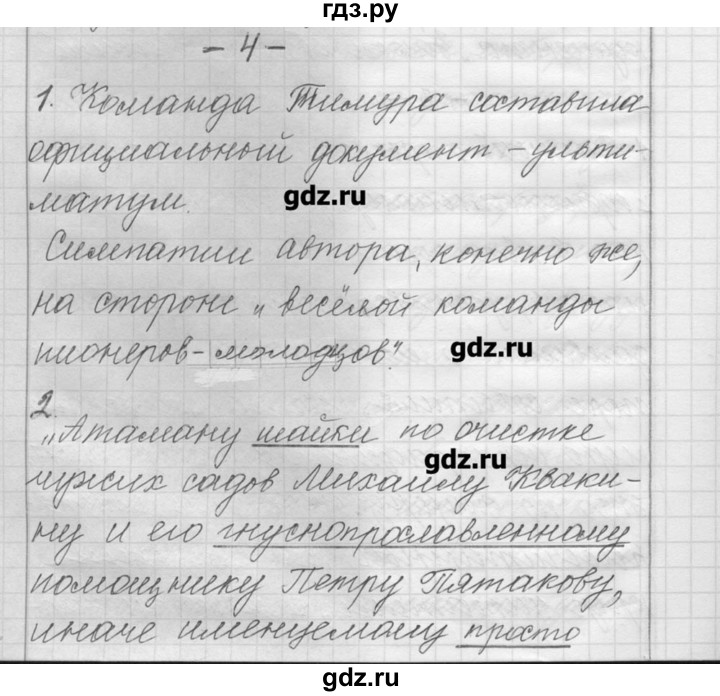 гдз.ру
- 4 -
1. Команда Тимура составила
официальный документ - ульти-
матум.
gdz.ru
Симпатии автора, конечно же,
на стороне „весёлой команды
пионеров-молодцов".
gdz.ru
2.
„Атаману шайки по очистке
gdz.ru
чужих садов Михаилу Кваки-
ну и его гнуснопрославленному
помощнику Петру Пятакову,
иначе именуемому просто
gdz.ru